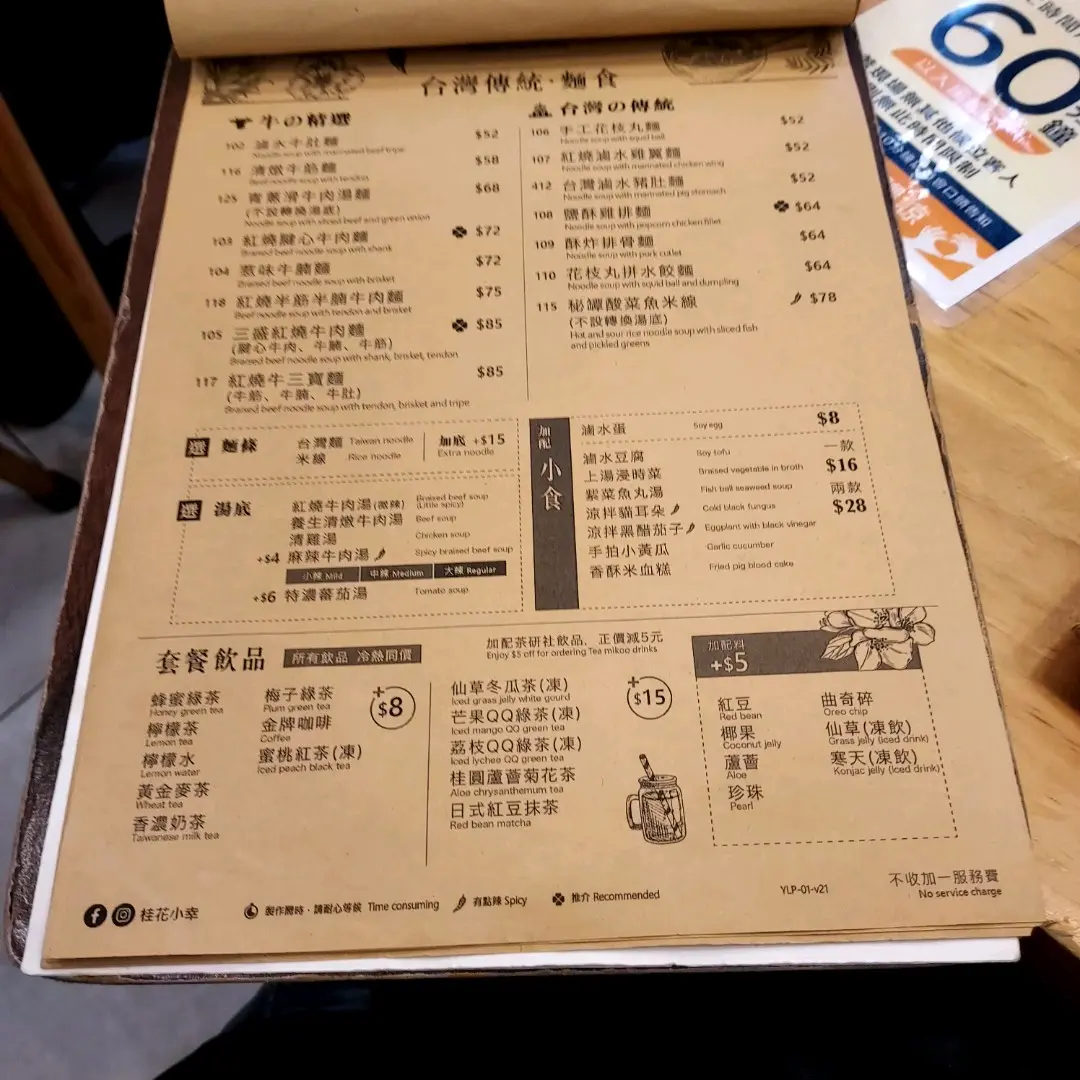 台灣傳統·麵食
牛の精選
102 滷水牛肚麵 $52
Noodle soup with marinated beef tripe
116 清燉牛筋麵 $58
Beef noodle soup with tendon
125 青蔥滑牛肉湯麵 $68
(不設轉換湯底)
Noodle soup with sliced beef and green onion
103 紅燒腱心牛肉麵 $72
Braised beef noodle soup with shank
104 惹味牛腩麵 $72
Beef noodle soup with brisket
118 紅燒半筋半腩牛肉麵 $75
Beef noodle soup with tendon and brisket
105 三盛紅燒牛肉麵 $85
(腱心牛肉、牛腩、牛筋)
Braised beef noodle soup with shank, brisket, tendon
117 紅燒牛三寶麵 $85
(牛筋、牛腩、牛肚)
Braised beef noodle soup with tendon, brisket and tripe
台灣の傳統
106 手工花枝丸麵 $52
Noodle soup with squid ball
107 紅燒滷水雞翼麵 $52
Noodle soup with marinated chicken wing
412 台灣滷水豬肚麵 $52
Noodle soup with marinated pig stomach
108 鹽酥雞排麵 $64
Noodle soup with popcorn chicken fillet
109 酥炸排骨麵 $64
Noodle soup with pork cutlet
110 花枝丸拼水餃麵 $64
Noodle soup with squid ball and dumpling
115 秘罈酸菜魚米線 $78
(不設轉換湯底)
Hot and sour rice noodle soup with sliced fish
and pickled greens
選 麵條
台灣麵 Taiwan noodle
米線 Rice noodle
加底 +$15
Extra noodle
選 湯底
紅燒牛肉湯(微辣) Braised beef soup
(Little spicy)
養生清燉牛肉湯 Beef soup
清雞湯 Chicken soup
+$4 麻辣牛肉湯 Spicy braised beef soup
小辣 Mild 中辣 Medium 大辣 Regular
+$6 特濃蕃茄湯 Tomato soup
加配 小食
滷水蛋 Soy egg $8
滷水豆腐 Soy tofu 一款
上湯浸時菜 Braised vegetable in broth $16
紫菜魚丸湯 Fish ball seaweed soup 兩款
涼拌貓耳朵 Cold black fungus $28
涼拌黑醋茄子 Eggplant with black vinegar
手拍小黃瓜 Garlic cucumber
香酥米血糕 Fried pig blood cake
套餐飲品 所有飲品 冷熱同價
蜂蜜綠茶
Honey green tea
檸檬茶
Lemon tea
檸檬水
Lemon water
黃金麥茶
Wheat tea
香濃奶茶
Taiwanese milk tea
梅子綠茶
Plum green tea
金牌咖啡
Coffee
蜜桃紅茶(凍)
Iced peach black tea
+$8
加配茶研社飲品，正價減5元
Enjoy $5 off for ordering Tea mikoo drinks
仙草冬瓜茶(凍)
Iced grass jelly white gourd
芒果QQ綠茶(凍)
Iced mango QQ green tea
荔枝QQ綠茶(凍)
Iced lychee QQ green tea
桂圓蘆薈菊花茶
Aloe chrysanthemum tea
日式紅豆抹茶
Red bean matcha
+$15
加配料
+$5
紅豆
Red bean
椰果
Coconut jelly
蘆薈
Aloe
珍珠
Pearl
曲奇碎
Oreo chip
仙草(凍飲)
Grass jelly (iced drink)
寒天(凍飲)
Konjac jelly (iced drink)
桂花小幸
製作需時，請耐心等候 Time consuming
有點辣 Spicy
推介 Recommended
YLP-01-v21
不收加一服務費
No service charge
60分鐘